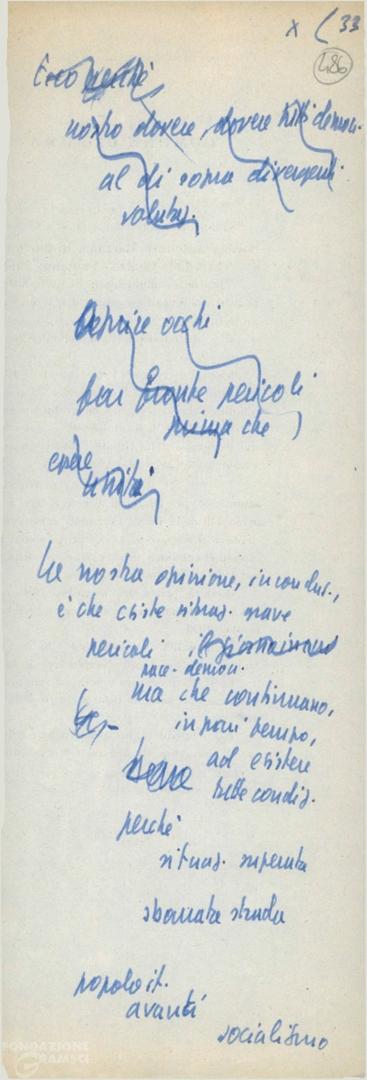 x ( 33
486
Ecco perché
nostro dovere, dovere tutti democr.
al di sopra divergenti
valutaz.
Aprire occhi
far fronte pericoli
prima che
unità
La nostra opinione, in conclus.,
è che esiste situaz. grave
pericoli
pace - democr.
ma che continuano,
in pari tempo,
ad esistere
tutte condiz.
perché
situaz. superata
sbarrata strada
popolo it.
avanti
socialismo
FONDAZIONE
GRAMSCI